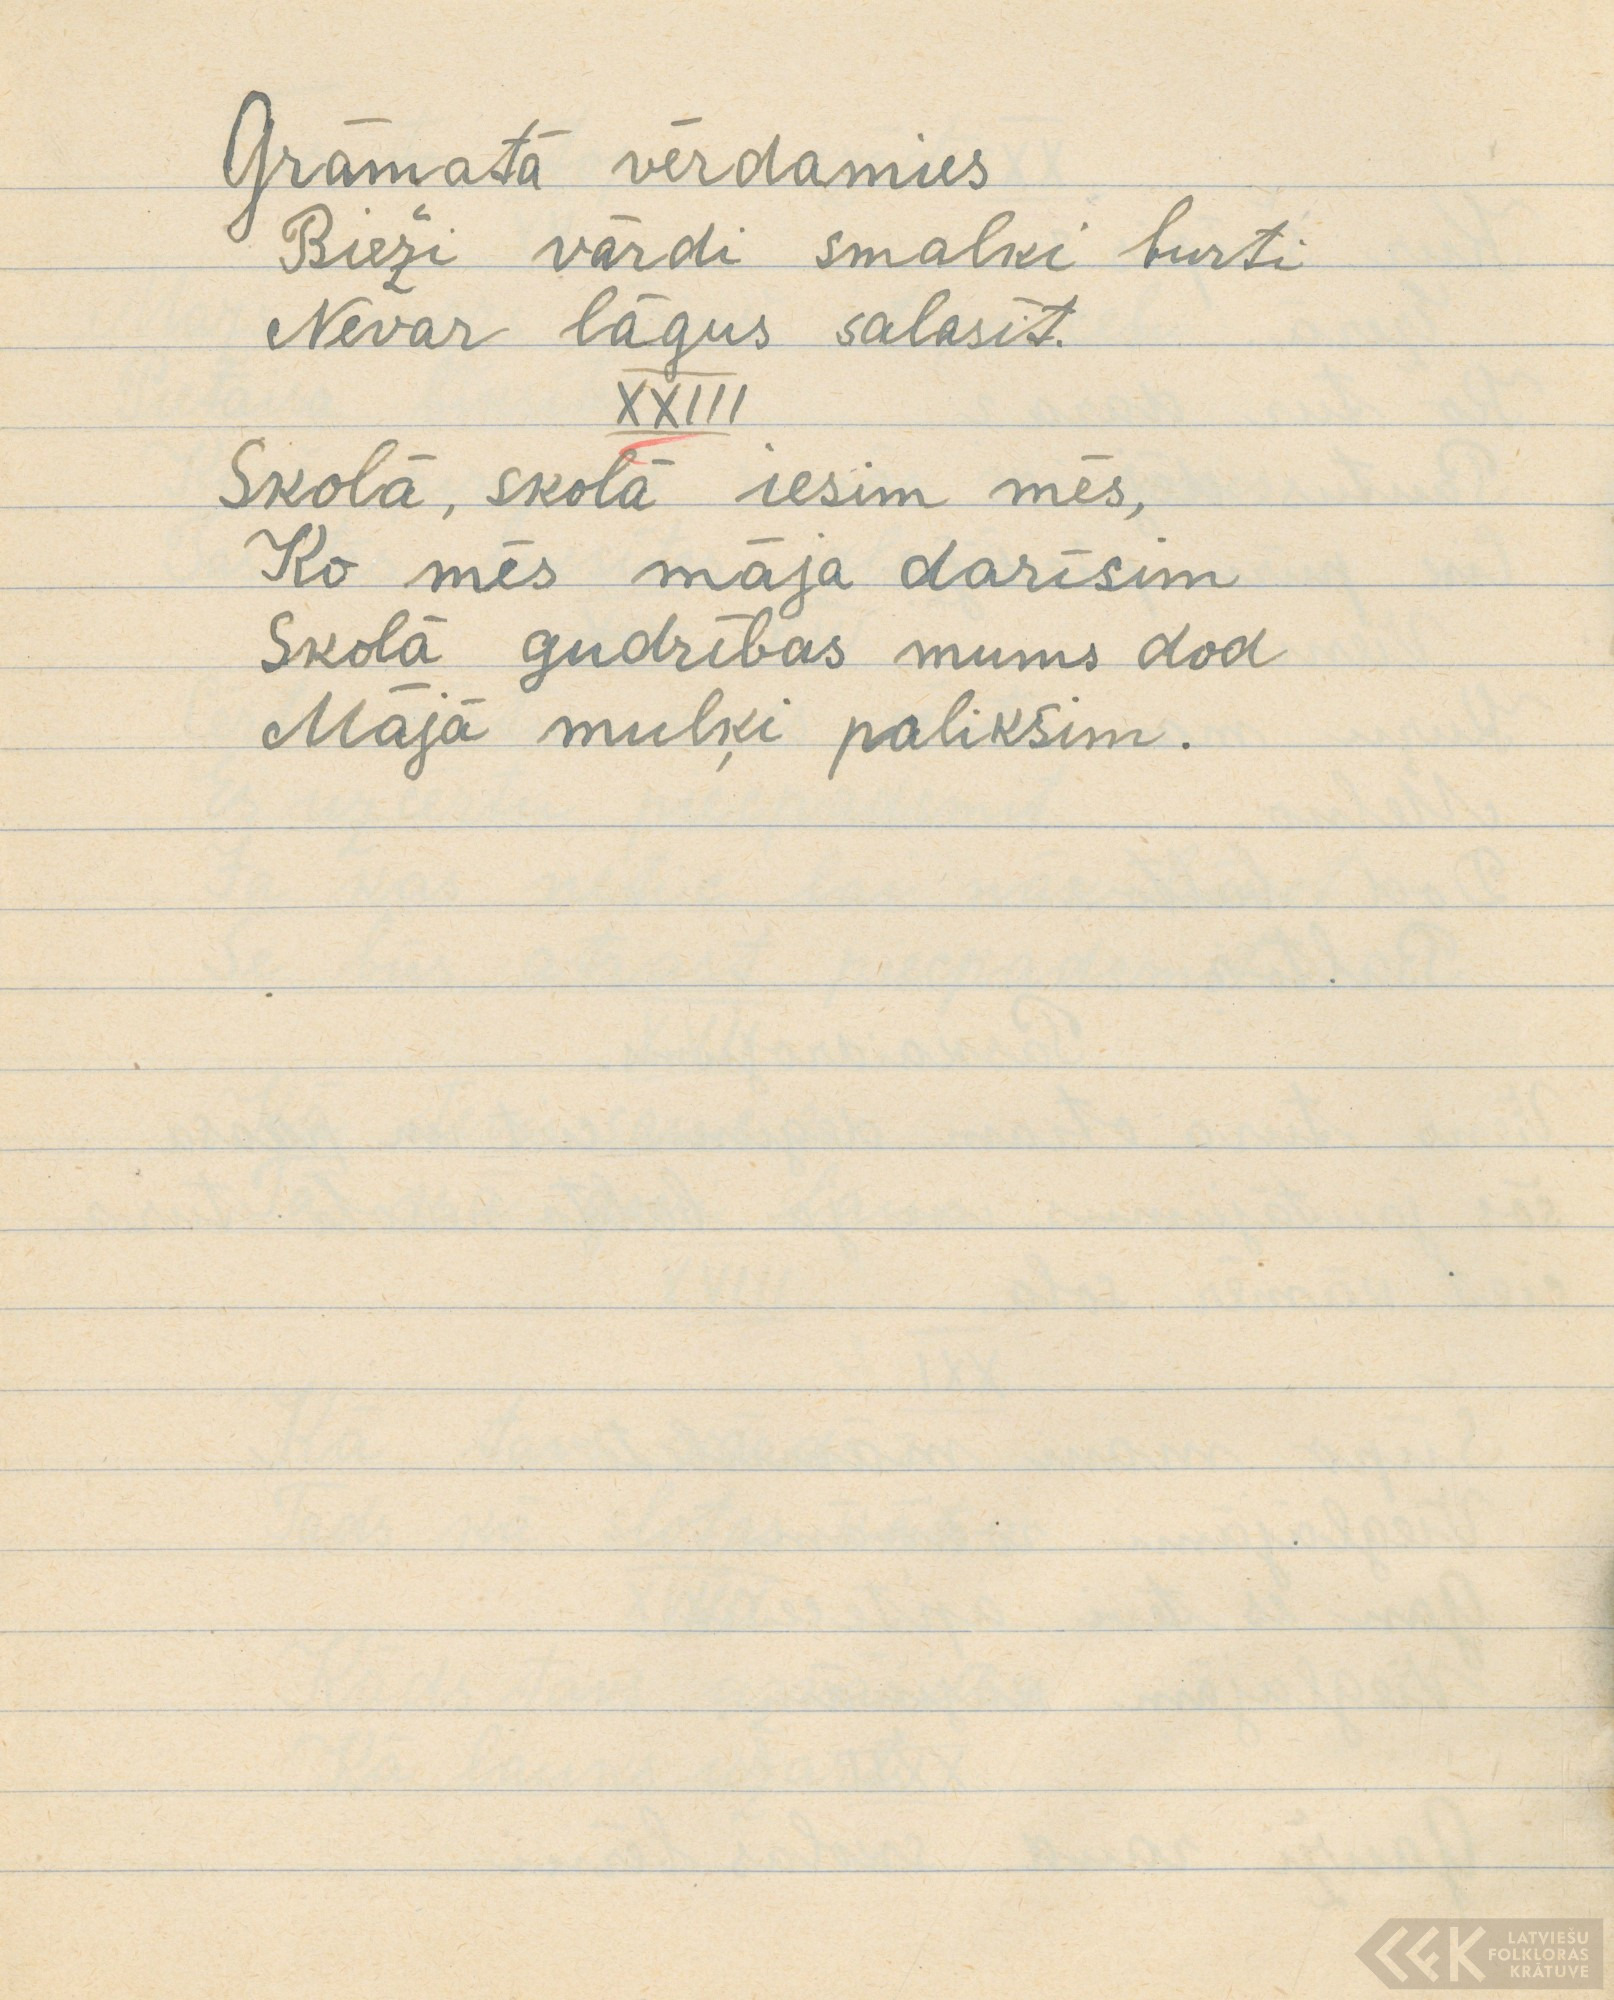 Grāmatā vērdamies
Bieži vārdi smalki burti
Nevar lāgus salasīt.
XXIII
Skolā, skolā iesim mēs,
Ko mēs māja darīsim
Skolā gudrības mums dod
Mājā muļķi paliksim.
LATVIEŠU
FOLKLORAS
KRĀTUVE